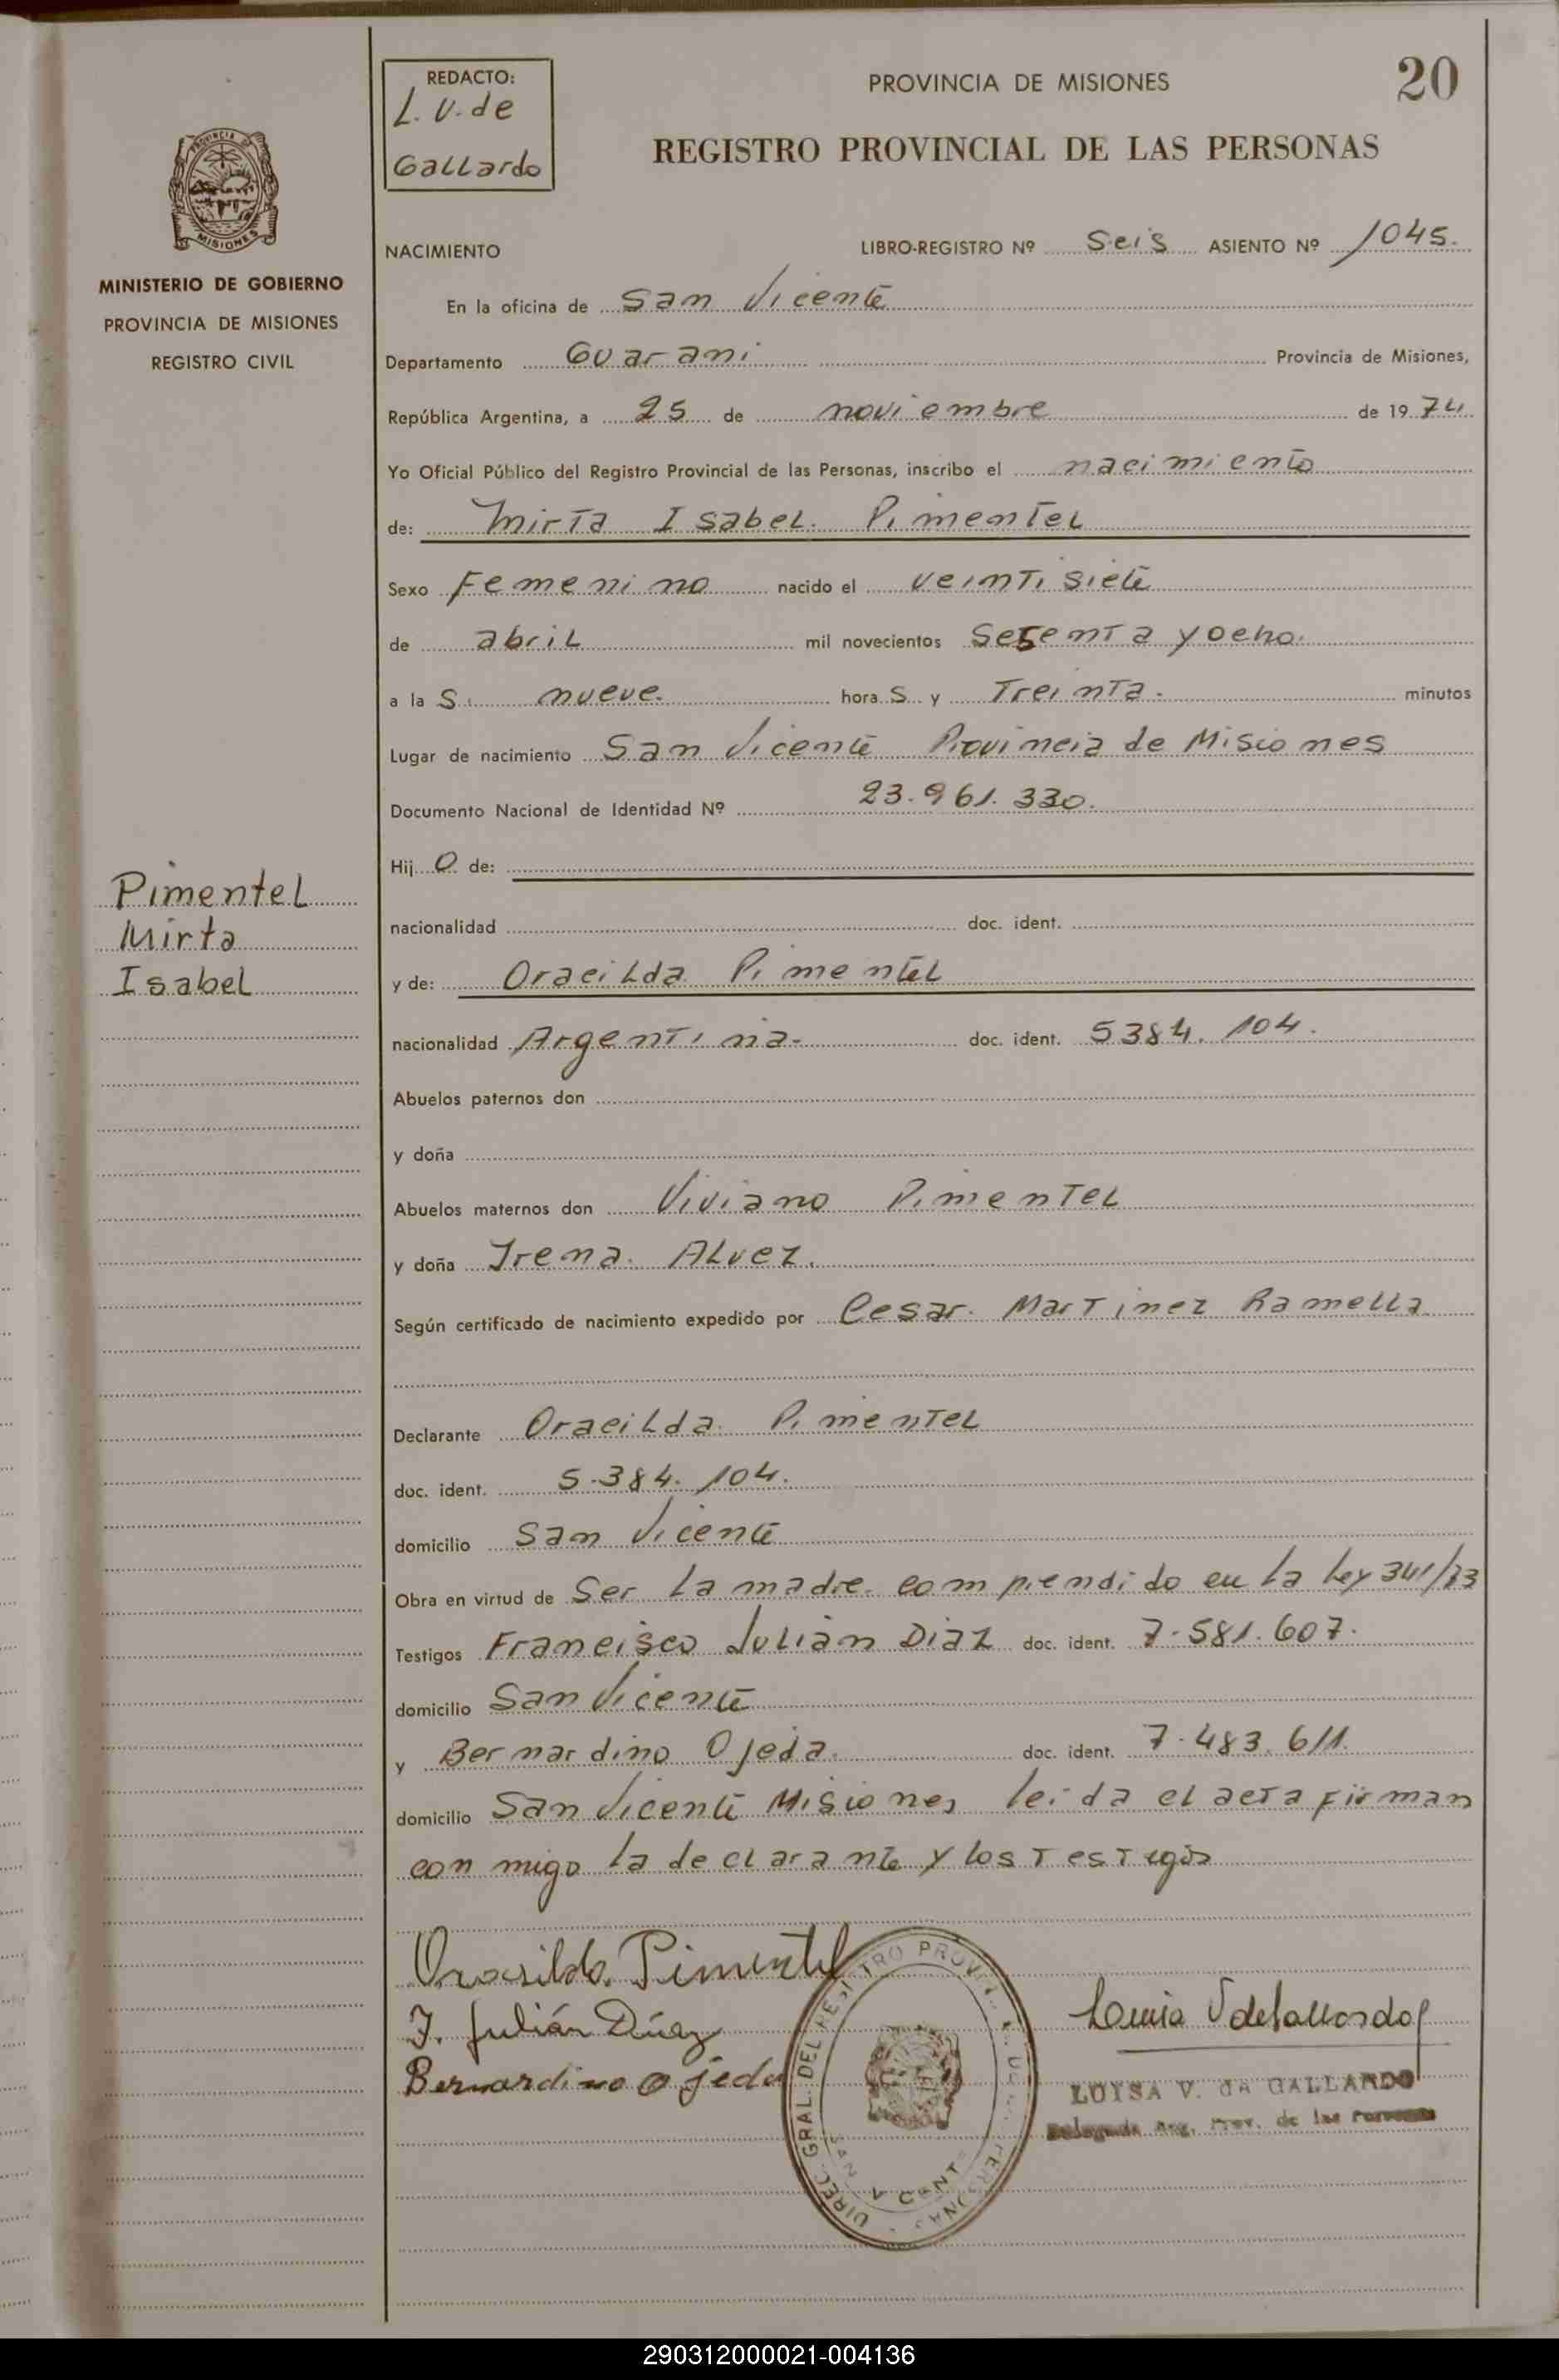 REDACTO:
L. V. de
Gallardo
PROVINCIA DE MISIONES
20
REGISTRO PROVINCIAL DE LAS PERSONAS
PROVINCIA
MISIONES
MINISTERIO DE GOBIERNO
PROVINCIA DE MISIONES
REGISTRO CIVIL
NACIMIENTO
LIBRO-REGISTRO Nº Seis ASIENTO Nº 1045.
En la oficina de San Vicente
Departamento Guarani Provincia de Misiones,
República Argentina, a 25 de noviembre de 1974
Yo Oficial Público del Registro Provincial de las Personas, inscribo el nacimiento
de: Mirta Isabel. Pimentel
Sexo Femenino nacido el veintisiete
de abril mil novecientos y ocho.
a la s. nueve. hora s y Treinta. minutos
Lugar de nacimiento San Vicente Provincia de Misiones
Documento Nacional de Identidad Nº 23.961.330.
Hij o de:
nacionalidad doc. ident.
y de: Oracilda Pimentel
nacionalidad Argentina. doc. ident. 5384.104.
Abuelos paternos don
y doña
Abuelos maternos don Viviano Pimentel
y doña Irena. Alvez.
Según certificado de nacimiento expedido por Cesar. Martinez Ramella
Declarante Oracilda. Pimentel
doc. ident. 5.384.104.
domicilio San Vicente
Obra en virtud de Ser la madre. comprendido en la ley 341/73
Testigos Francisco Julian Diaz doc. ident. 7.581.607.
domicilio San Vicente
y Bernardino Ojeda. doc. ident. 7.483.611.
domicilio San Vicente Misiones leida el acta firman
con migo la declarante y los testigos
Pimentel
Mirta
Isabel
Orasilda Pimentel
F. Julián Díaz
Bernardino Ojeda
DIREC. GRAL. DEL
LUISA V. de GALLARDO
Reg. Prov. de las Personas
290312000021-004136